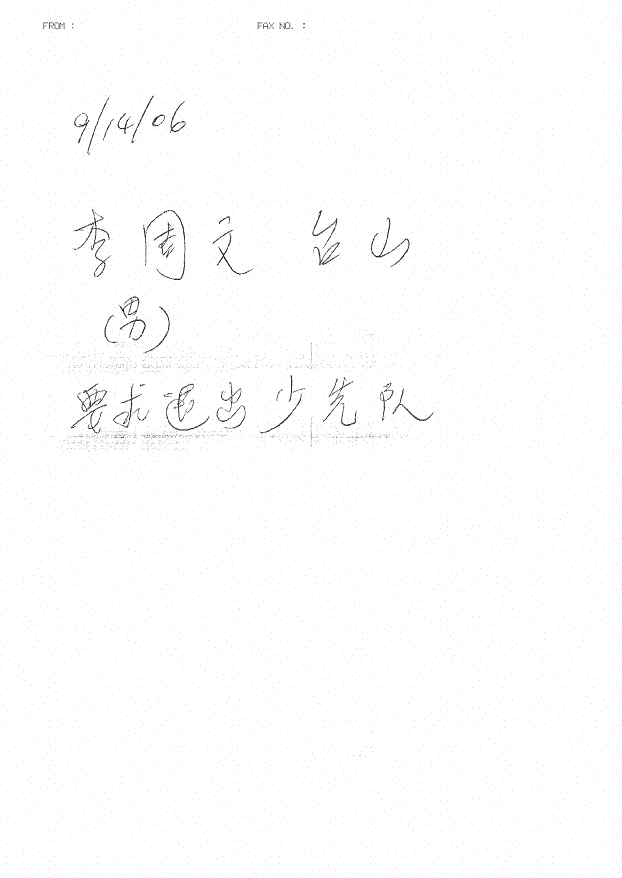 FROM : FAX NO. :
9/14/06
李周文 台山
(男)
要求退出少先队